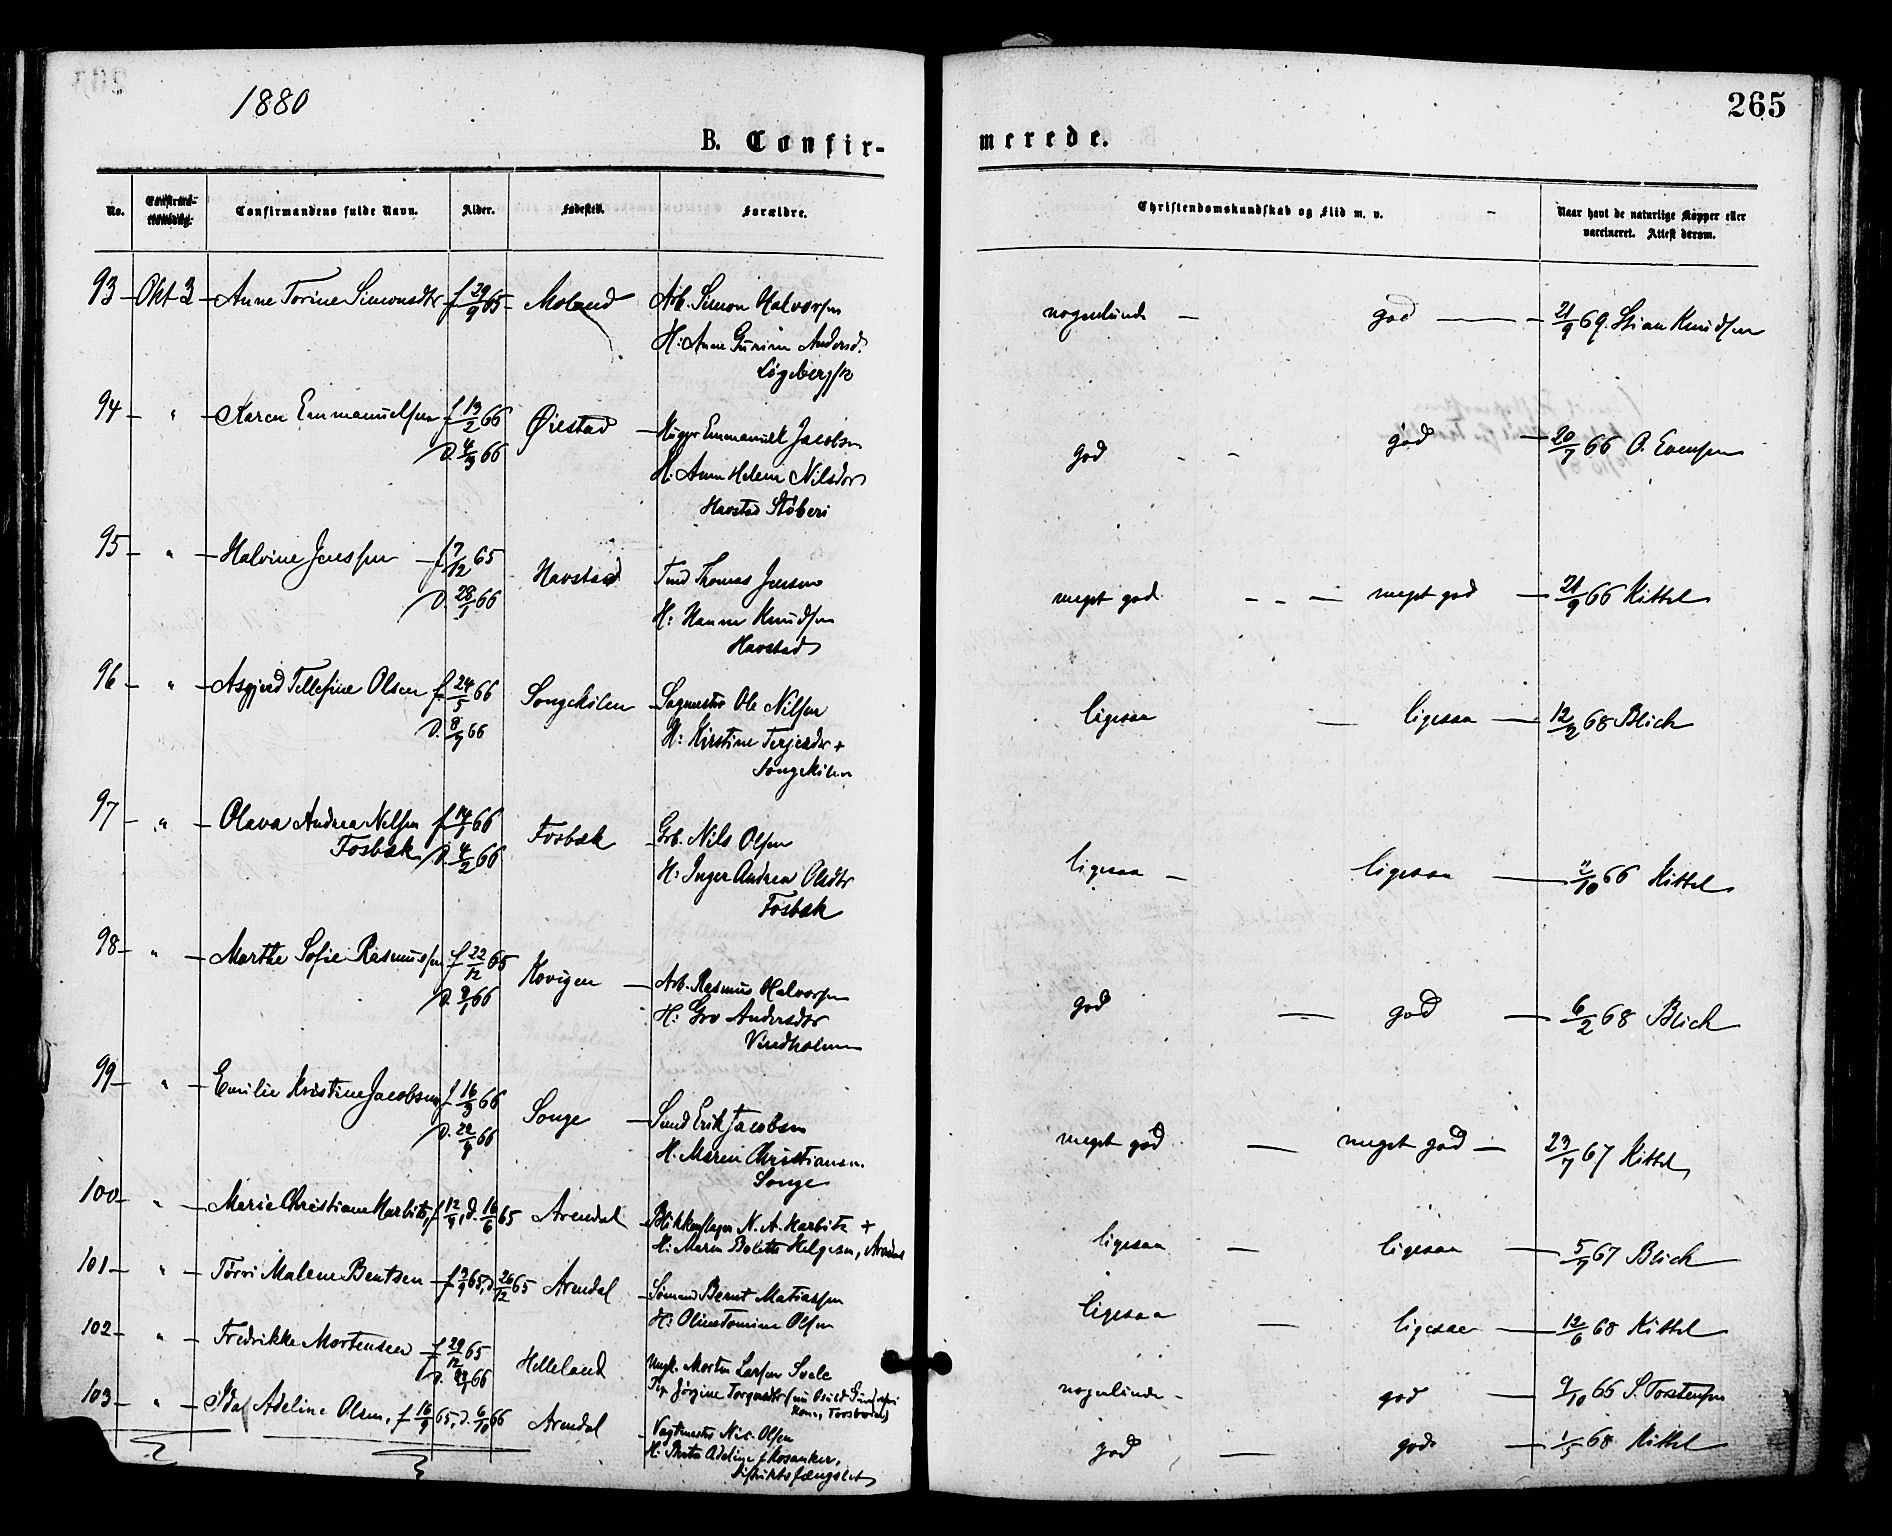 1880
265
B. Confir-
merede.
No.
Confirma-
tionsdag.
Confirmandens fulde Navn.
Alder.
Fødested.
Forældre.
Christendomskundskab og Flid m. v.
Naar havt de naturlige Kopper eller
vaccineret. Attest derom.
93 Okt 3 Anne Torine Simonsdtr f 29/9 65 Moland Arb. Simon Halvorsen
H: Anne Gurine Andersd.
nogenlunde god 21/9 69. Stian Knudsen
94 " Karen Emmanuelsen f 13/2 66 Øiestad Emmanuel Jacobsen
D. 4/3 66 H. Anne Helene Nilsdtr
Havstad
god god 20/7 66 O. Evensen
95 " Halvine Jenssen f 7/12 65 Havstad Thomas Jensen
D. 28/1 66 H: Hanne Knudsen
Havstad
meget god meget god 21/9 66 Kittel
96 " Asgjerd Tellefine Olsen f 24/5 66 Songekilen Ole Nilsen
D. 8/7 66 H: Kirstine Terjesdtr +
Songekilen
ligesaa ligesaa 12/2 68 Blich
97 " Olava Andrea Nilsen f 14/1 66 Fosbæk Grb. Nils Olsen
Fosbæk D. 4/2 66 H: Inger Andrea Olsdtr
Fosbæk
ligesaa ligesaa /10 66 Kittel
98 " Marthe Sofie Rasmussen f 22/12 65 Arb. Rasmus Halvorsen
D. 66 H: Gro Andersdtr
Vindholmen
god god 6/2 68 Blich
99 " Emilie Kristine Jacobsen f 16/3 66 Songe Erik Jacobsen
D. 22/4 66 H. Maren Christiansen
Songe
meget god meget god 23/7 67 Kittel
100 " Marie Christiane Harbitz, f 12/4, d. 16/6 65 Arendal Blikkenslager N. A. Harbitz +
H: Maren Bolette Helgesen, Arendal
ligesaa ligesaa 5/7 67 Blich
101 " Malene Bentsen f 9/9 65, d 26/12 65 Arendal Sømand Bernt Mathiassen
H: Oline Tomine Olsen
ligesaa ligesaa 12/6 68 Kittel
102 " Fredrikke Mortensen f 29/12 65 Helleland Ungk. Morten Larsen
D. 66 Pig. Jørgine
nogenlunde god 9/10 66 S. Torstensen
103 " Ida Adeline Olsen, f 16/9 65, d. 6/10 66 Arendal Vagtmester Nils Olsen
H: Adeline f Rosanker,
Distriktsfængslet
god god 1/5 68 Kittel